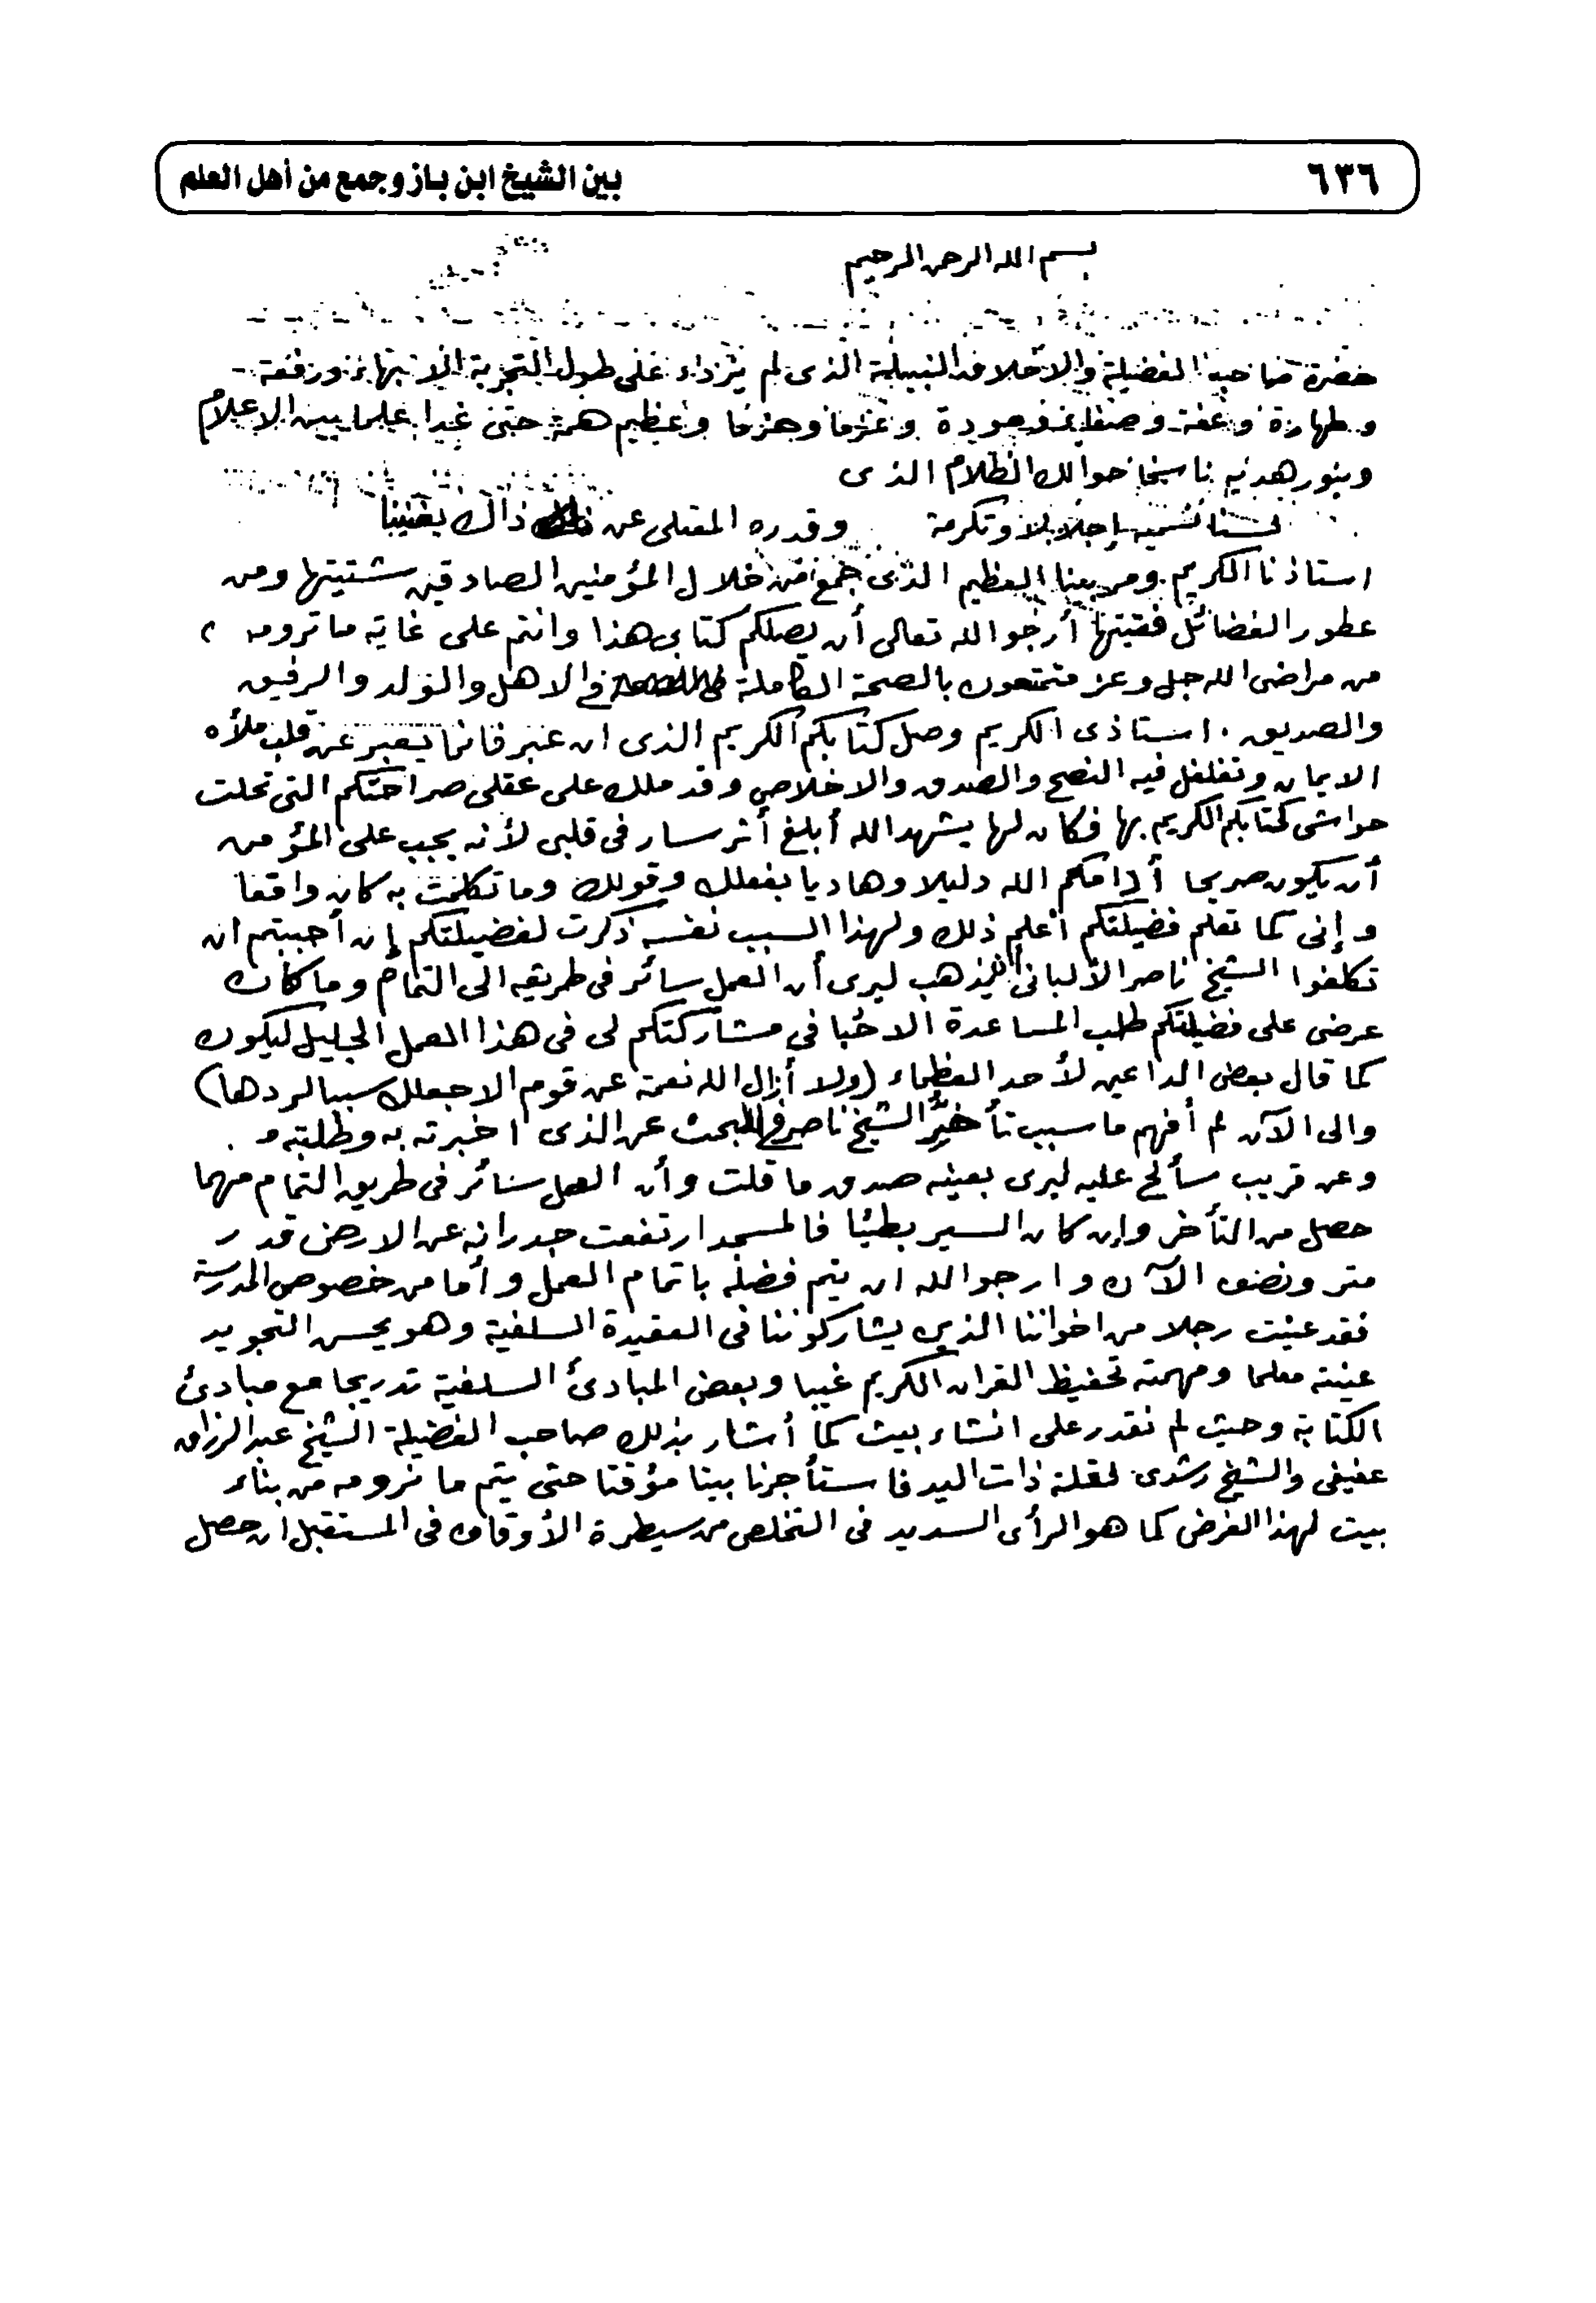 ٦٣٦
بين الشيخ ابن باز وجمع من أهل العلم
بسم الله الرحمن الرحيم
حضرة صاحب الفضيلة والاخلاق النبيلة الذى لم يزداد على طول التجربة الا نبهاء ورفعة
وطهارة وعفة وصفاء وجودة وعزما وحزما وعظيم همة حتى غدا علما بين الاعلام
وبنور هديه ناسخا حوالك الظلام الذى
لسنا نسميه إجلالا وتكرمة وقدره المعتلى عن ذاك يغنينا
استاذنا الكريم ومربينا العظيم الذى جمع من خلال المؤمنين الصادقين شتيتها ومن
عطور الفضائل فتيتها أرجو الله تعالى أن يصلكم كتابى هذا وانتم على غاية ما ترومه
من مراضى الله جل وعز متمتعون بالصحة الكاملة فى الاهل والولد والرفيق
والصديق . استاذى الكريم وصل كتابكم الكريم الذى ان عبر فانما يعبر عن قلب ملأه
الايمان وتغلغل فيه النصح والصدق والاخلاص وقد ملك على عقلى صراحتكم التى تحلت
حواشى كتابكم الكريم بها فكان لها يشهد الله أبلغ أثر سار فى قلبى لأنه يجب على المؤمن
أن يكون صريحا أدامكم الله دليلا وهاديا بفعلك وقولك وما تكلمت به كان واقعا
و إنى كما تعلم فضيلتكم أعلم ذلك ولهذا السبب نفسه ذكرت لفضيلتكم إن أحببتم ان
تكلفوا الشيخ ناصر الألبانى ليذهب ليرى أن العمل سائر فى طريقه الى التمام وما كان
عرضى على فضيلتكم طلب المساعدة الا حُبا فى مشاركتكم لى فى هذا العمل الجليل ليكون
كما قال بعض الداعين لأحد العظماء (ولا أزال الله نعمة عن قوم الا جعلك سببا لردها)
والى الآن لم أفهم ما سبب تأخير الشيخ ناصر فى البحث عن الذى اخبرته به وطلبته .
وعن قريب سألح عليه ليرى بعينه صدق ما قلت وأن العمل سائر فى طريق التمام مهما
حصل من التأخر وإن كان السير بطيئا فالمسجد ارتفعت جدرانه عن الارض قدر
متر ونصف الآن و ارجو الله ان يتم فضله باتمام العمل وأما من خصوص المدرسة
فقد عينت رجلا من اخواننا الذين يشاركوننا فى العقيدة السلفية وهو يحسن التجويد
عينته معلما ومهمته تحفيظ القران الكريم غيبا وبعض المبادئ السلفية تدريجا مع مبادئ
الكتابة وحيث لم نقدر على انشاء بيت كما أشار بذلك صاحب الفضيلة الشيخ عبد الرزاق
عفيفى والشيخ رشدى لقلة ذات اليد فاستأجرنا بيتا مؤقتا حتى يتم ما نرومه من بناء
بيت لهذا الغرض كما هو الرأى السديد فى التخلص من سيطرة الأوقاف فى المستقبل ان حصل